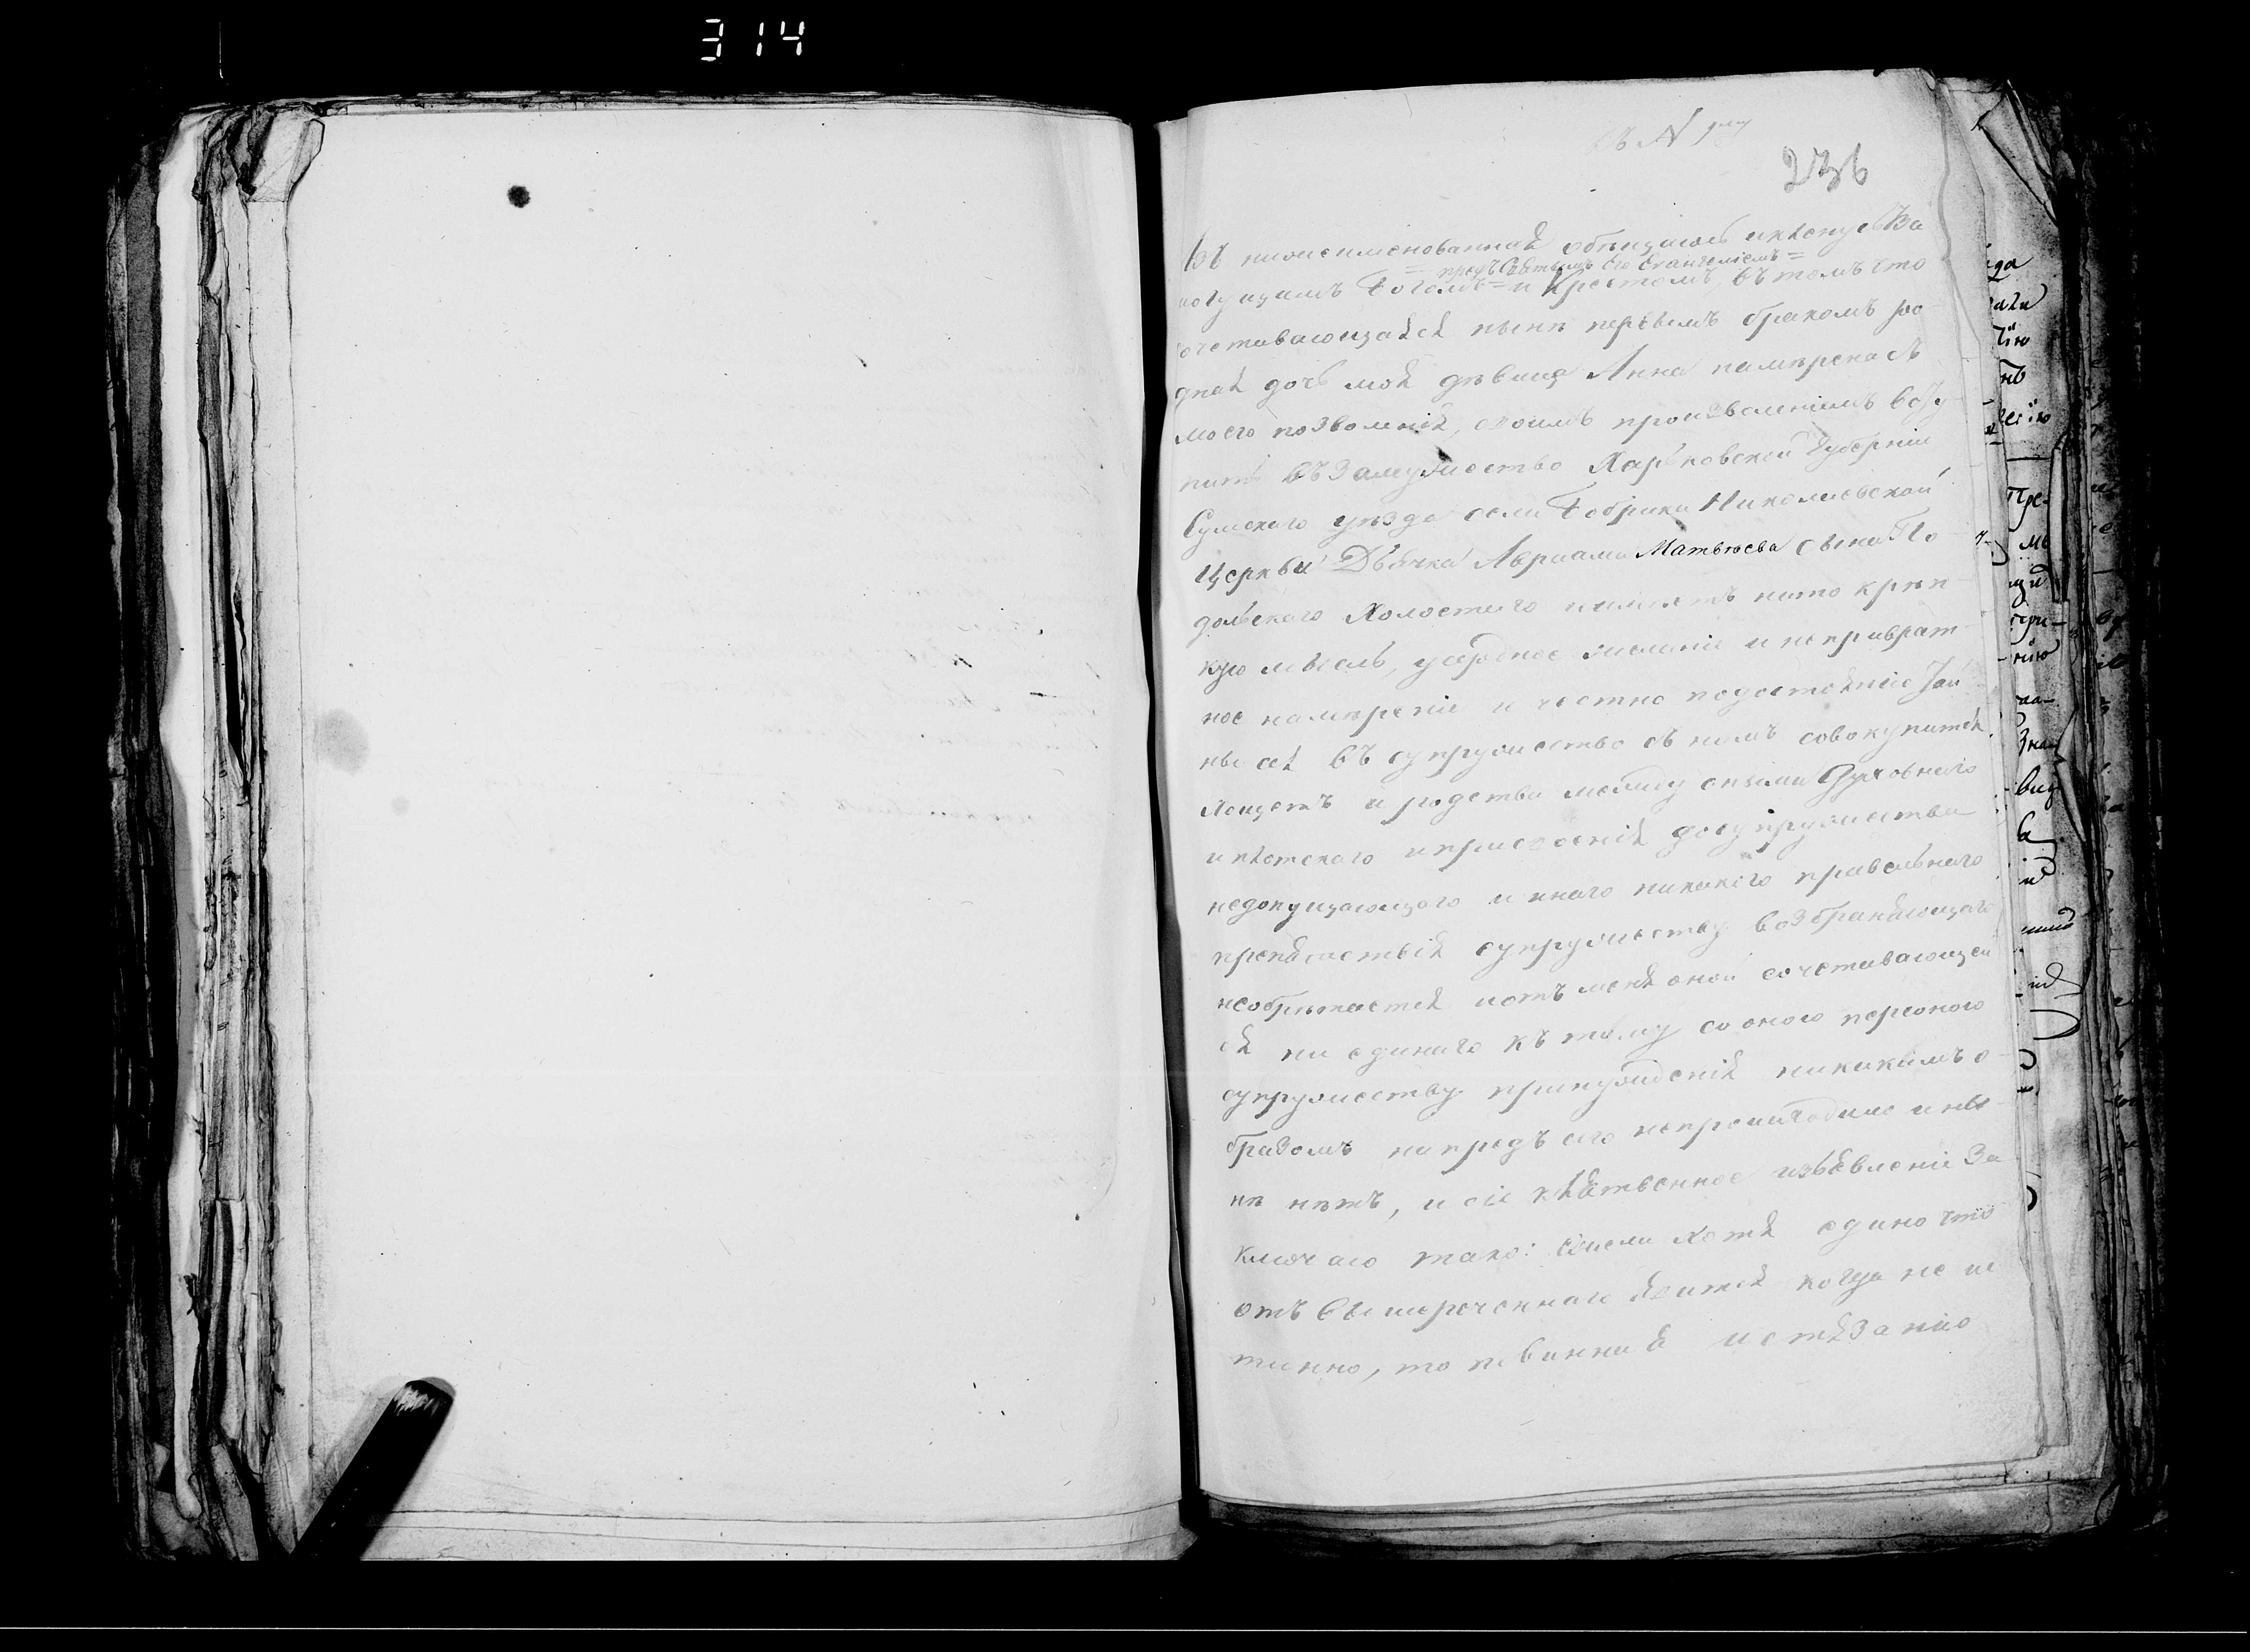 314
къ N 9му
236
Въ нижеименованная обѣщаюсь и клянусь Все
= предъ Святымъ Его Евангеліемъ =
могущимъ Богомъ = и Крестомъ въ томъ что
сочетавающаяся нынѣ первымъ бракомъ ро-
дная дочь моя дѣвица Анна намѣрена съ
моего позволенія, своимъ произволеніемъ всту-
пить въ замужество Харьковской Губерніи
Сумскаго уѣзда села Бобрика Николаевской
Церкви Дьячка Авраама Матвѣева сына По-
дольскаго Холостаго и имѣетъ на то крѣп-
кую мысль, усердное желаніе и неприврат-
ное намѣреніе и честно по достоянію
въ супружество съ нимъ совокупится
Хощетъ и родства между оными Духовнаго
и плотскаго и присвоенія до супружества
недопущающаго и инаго никакого правельнаго
препятствія супружеству возбраняющаго
необрѣтается и отъ меня оной сочетавающей
ся ни единаго къ тому со оного персоного
супружеству принужденія никакимъ о-
бразомъ напредъ сего непроизходило и ны-
нѣ нѣтъ, и сіе клятвенное изъявленіе за
ключаю тако: ежели хотя едино что
отъ вышереченнаго явится когда не ис
тинно, то повинна я истязанію